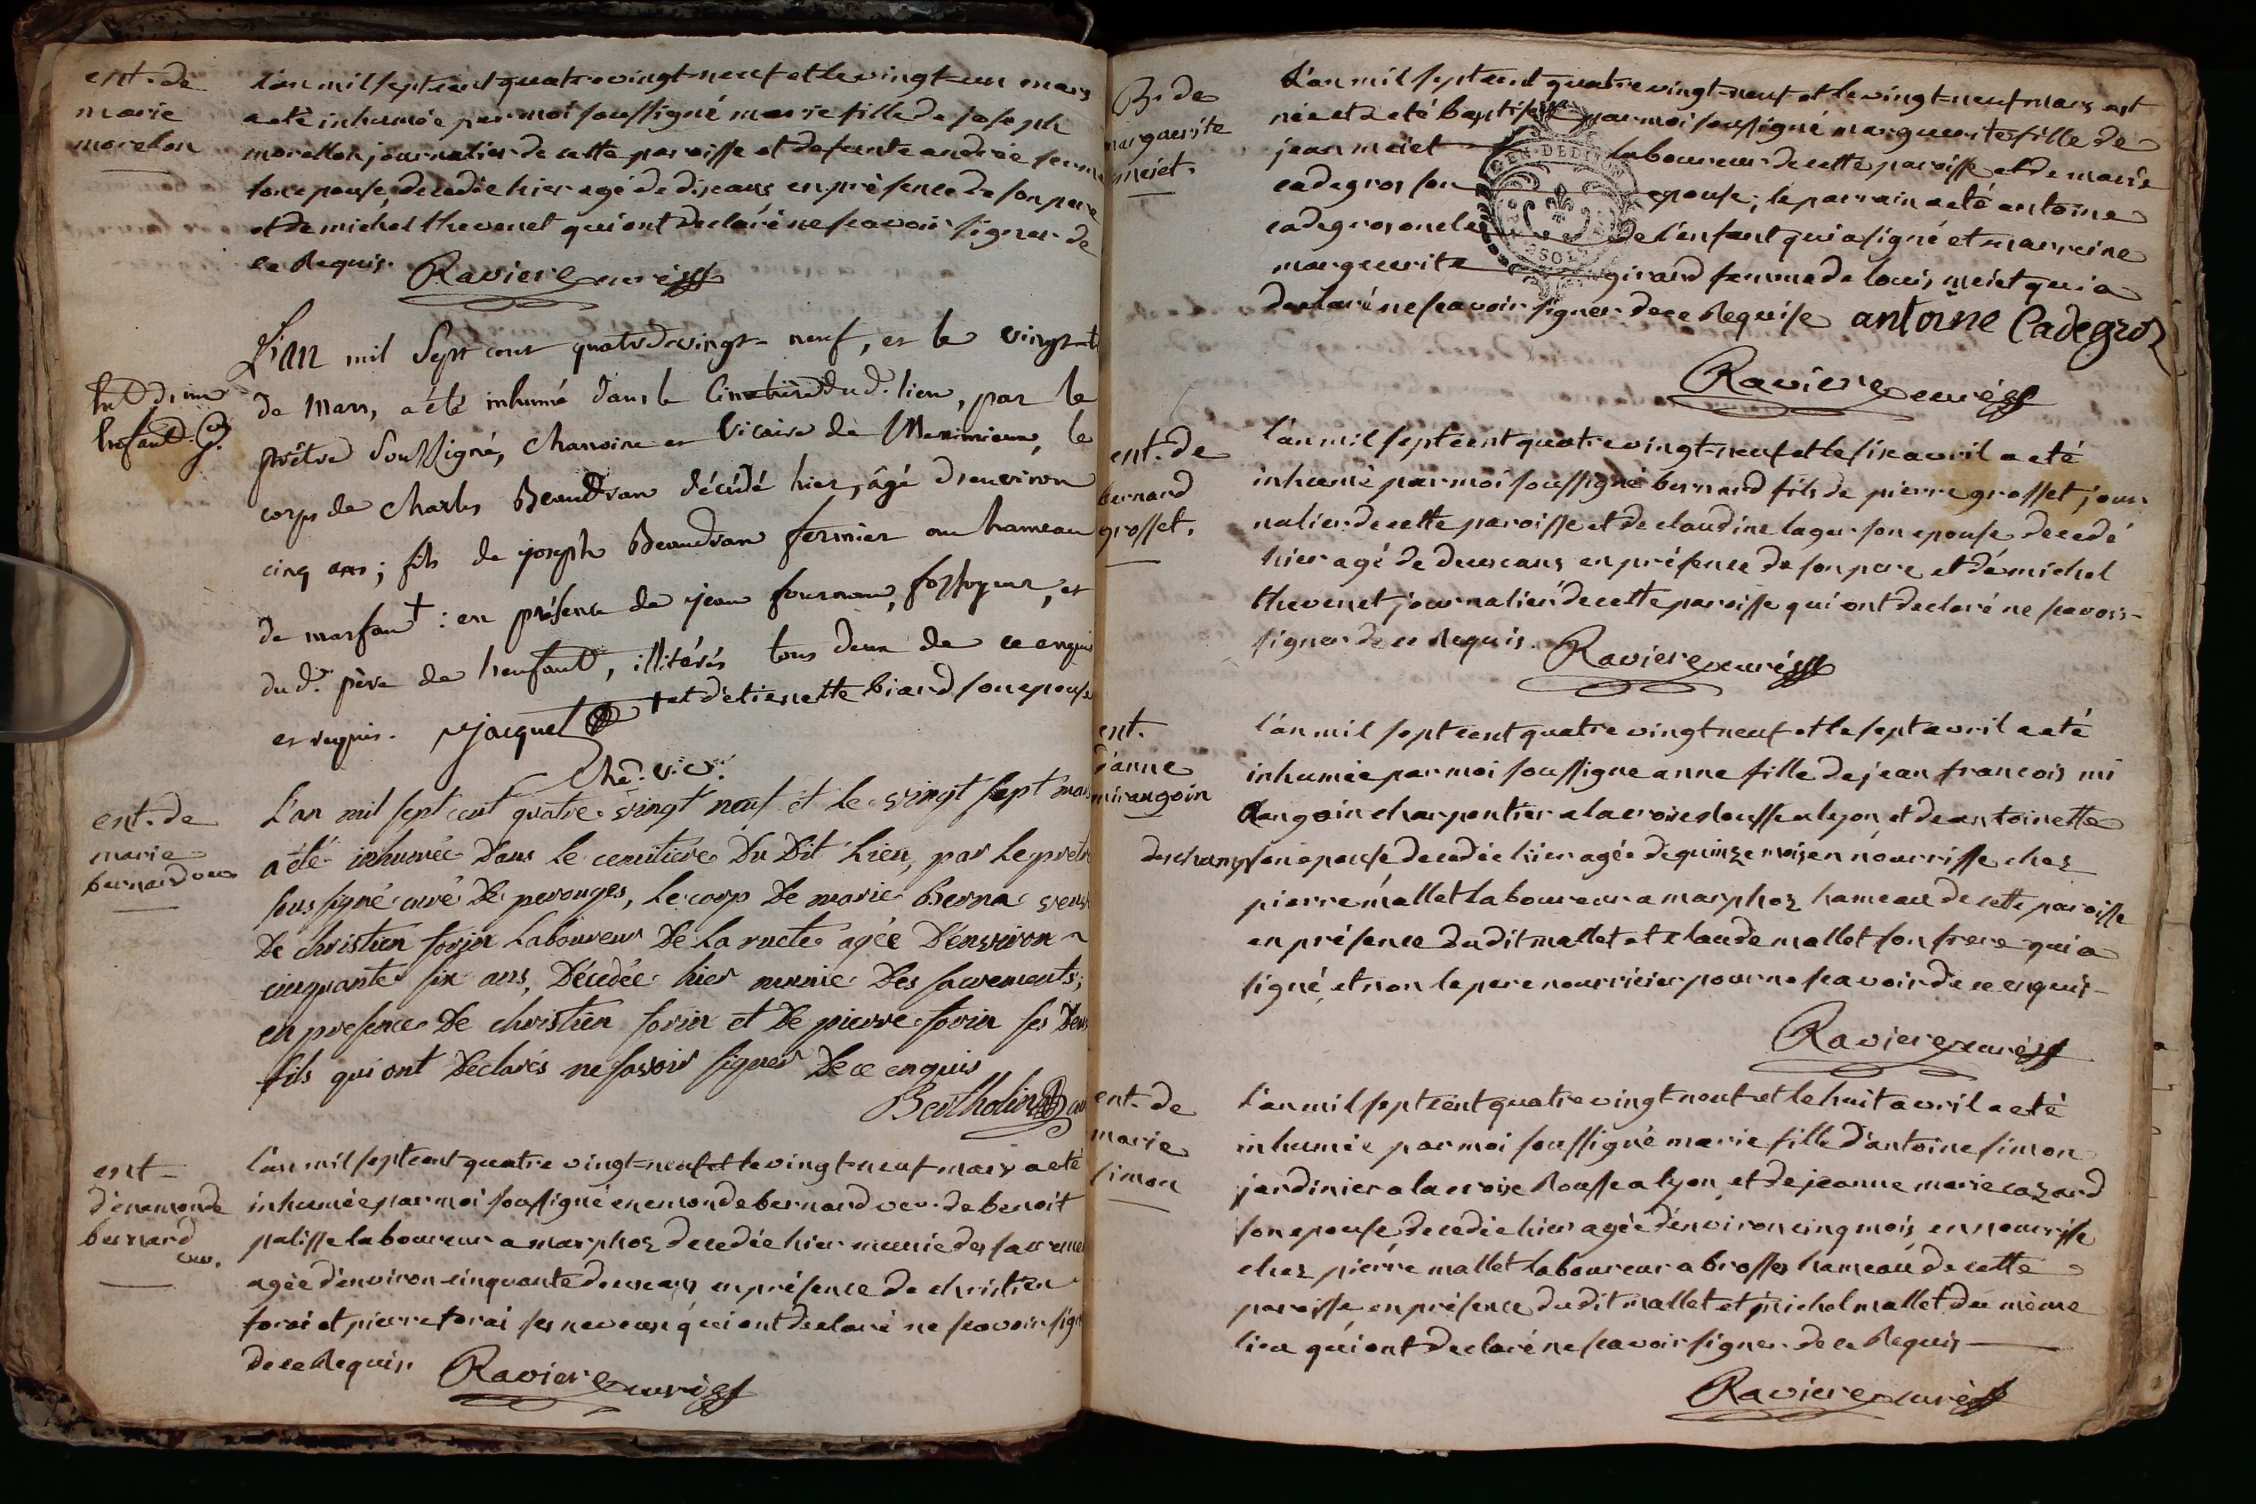 ent. de
marie
morelon
L'an mil sept cent quatre vingt-neuf et le vingt-un mars
a eté inhumée par moi soussigné marie fille de joseph
morellon journalier de cette paroisse et defunte andrée
son epouse, decedée hier agé de dix ans, en présence de son pere
et de michel thevenet qui ont déclaré ne scavoir signer de
ce Requis. Raviere curé
L'an mil Sept cent quatre-vingt-neuf, et le vingt
de Mars, a été inhumé dans le Cimetiere dud. lieu, par le
prêtre Soussigné, chanoine et Vicaire de Meximieux, le
corps de charles Beaudran décédé hier, âgé d'environ
cinq ans; fils de joseph Beaudran fermier au hameau
de marfan † : en présence de jean fournou, fossoyeur, et
dud. père de l'enfant, illitérés tous deux de ce enquis
et requis. Jacquet † et d'etienette biard son epouse
Ch. vic.
ent. de
marie
berna
L'an mil sept cent quatre vingt neuf et le vingt sept mars
a été inhumée dans le cemitiere du dit lieu, par le pretre
sus signé curé de perouges, le corp de marie Berna veuve
de christien forin laboureur de la ruete agée d'environ
cinquante six ans, décedée hier munie des sacrements;
en presence de christien forin et de pierre forin ses deux
fils qui ont déclarés ne savoir signer de ce enquis
Bertholin
ent
d'enemonde
bernard
L'an mil sept cent quatre vingt-neuf et le vingt-neuf mars a eté
inhumée par moi soussigné enemonde bernard veu. de benoit
palisse laboureur a marphoz decedée hier munie des sacremen
agée d'environ cinquante deux ans en présence de christien
forai et pierre forai ses neveux qui ont déclaré ne scavoir sign
de ce Requis. Raviere curé
B. de
marguerite
meiet.
L'an mil sept cent quatre vingt-neuf et le vingt-neuf mars est
née et a eté baptisée par moi soussigné marguerite fille de
jean meiet laboureur de cette paroisse et de marie
cadegros son epouse; le parrain a eté antoine
cadegros oncle de l'enfant qui a signé et marreine
marguerite girard femme de louis meiet qui a
declaré ne scavoir signer de ce Requise antoine Cadegroz
Raviere curé
ent. de
bernard
grosset.
L'an mil sept cent quatre vingt-neuf et le six avril a eté
inhumé par moi soussigné bernard fils de pierre grosset jour
nalier de cette paroisse et de claudine lager son epouse decedé
hier agé de deux ans en présence de son pere et de michel
thevenet journalier de cette paroisse qui ont declaré ne scavoir
signer de ce Requis. Raviere curé
ent.
d'anne
mirangoin
L'an mil sept cent quatre vingt neuf et le sept avril a eté
inhumée par moi soussigne anne fille de jean francois mi
rangoin charpentier a la croix rousse a lyon, et de antoinette
deschamps son epouse, decedée hier agée de quinze mois en nourrisse chez
pierre mallet laboureur a marphoz hameau de cette paroisse
en présence du dit mallet et claude mallet son frere qui a
signé, et non le pere nourricier pour ne scavoir de ce enquis
Raviere curé
ent. de
marie
simon
L'an mil sept cent quatre vingt-neuf et le huit avril a eté
inhumée par moi soussigné marie fille d'antoine simon
jardinier a la croix Rousse a lyon, et de jeanne marie cazard
son epouse, decedée hier agée d'environ cinq mois, en nourrisse
chez pierre mallet laboureur a brosses hameau de cette
paroisse, en présence du dit mallet et michel mallet du même
lieu qui ont declaré ne scavoir signer de ce Requis
Raviere curé